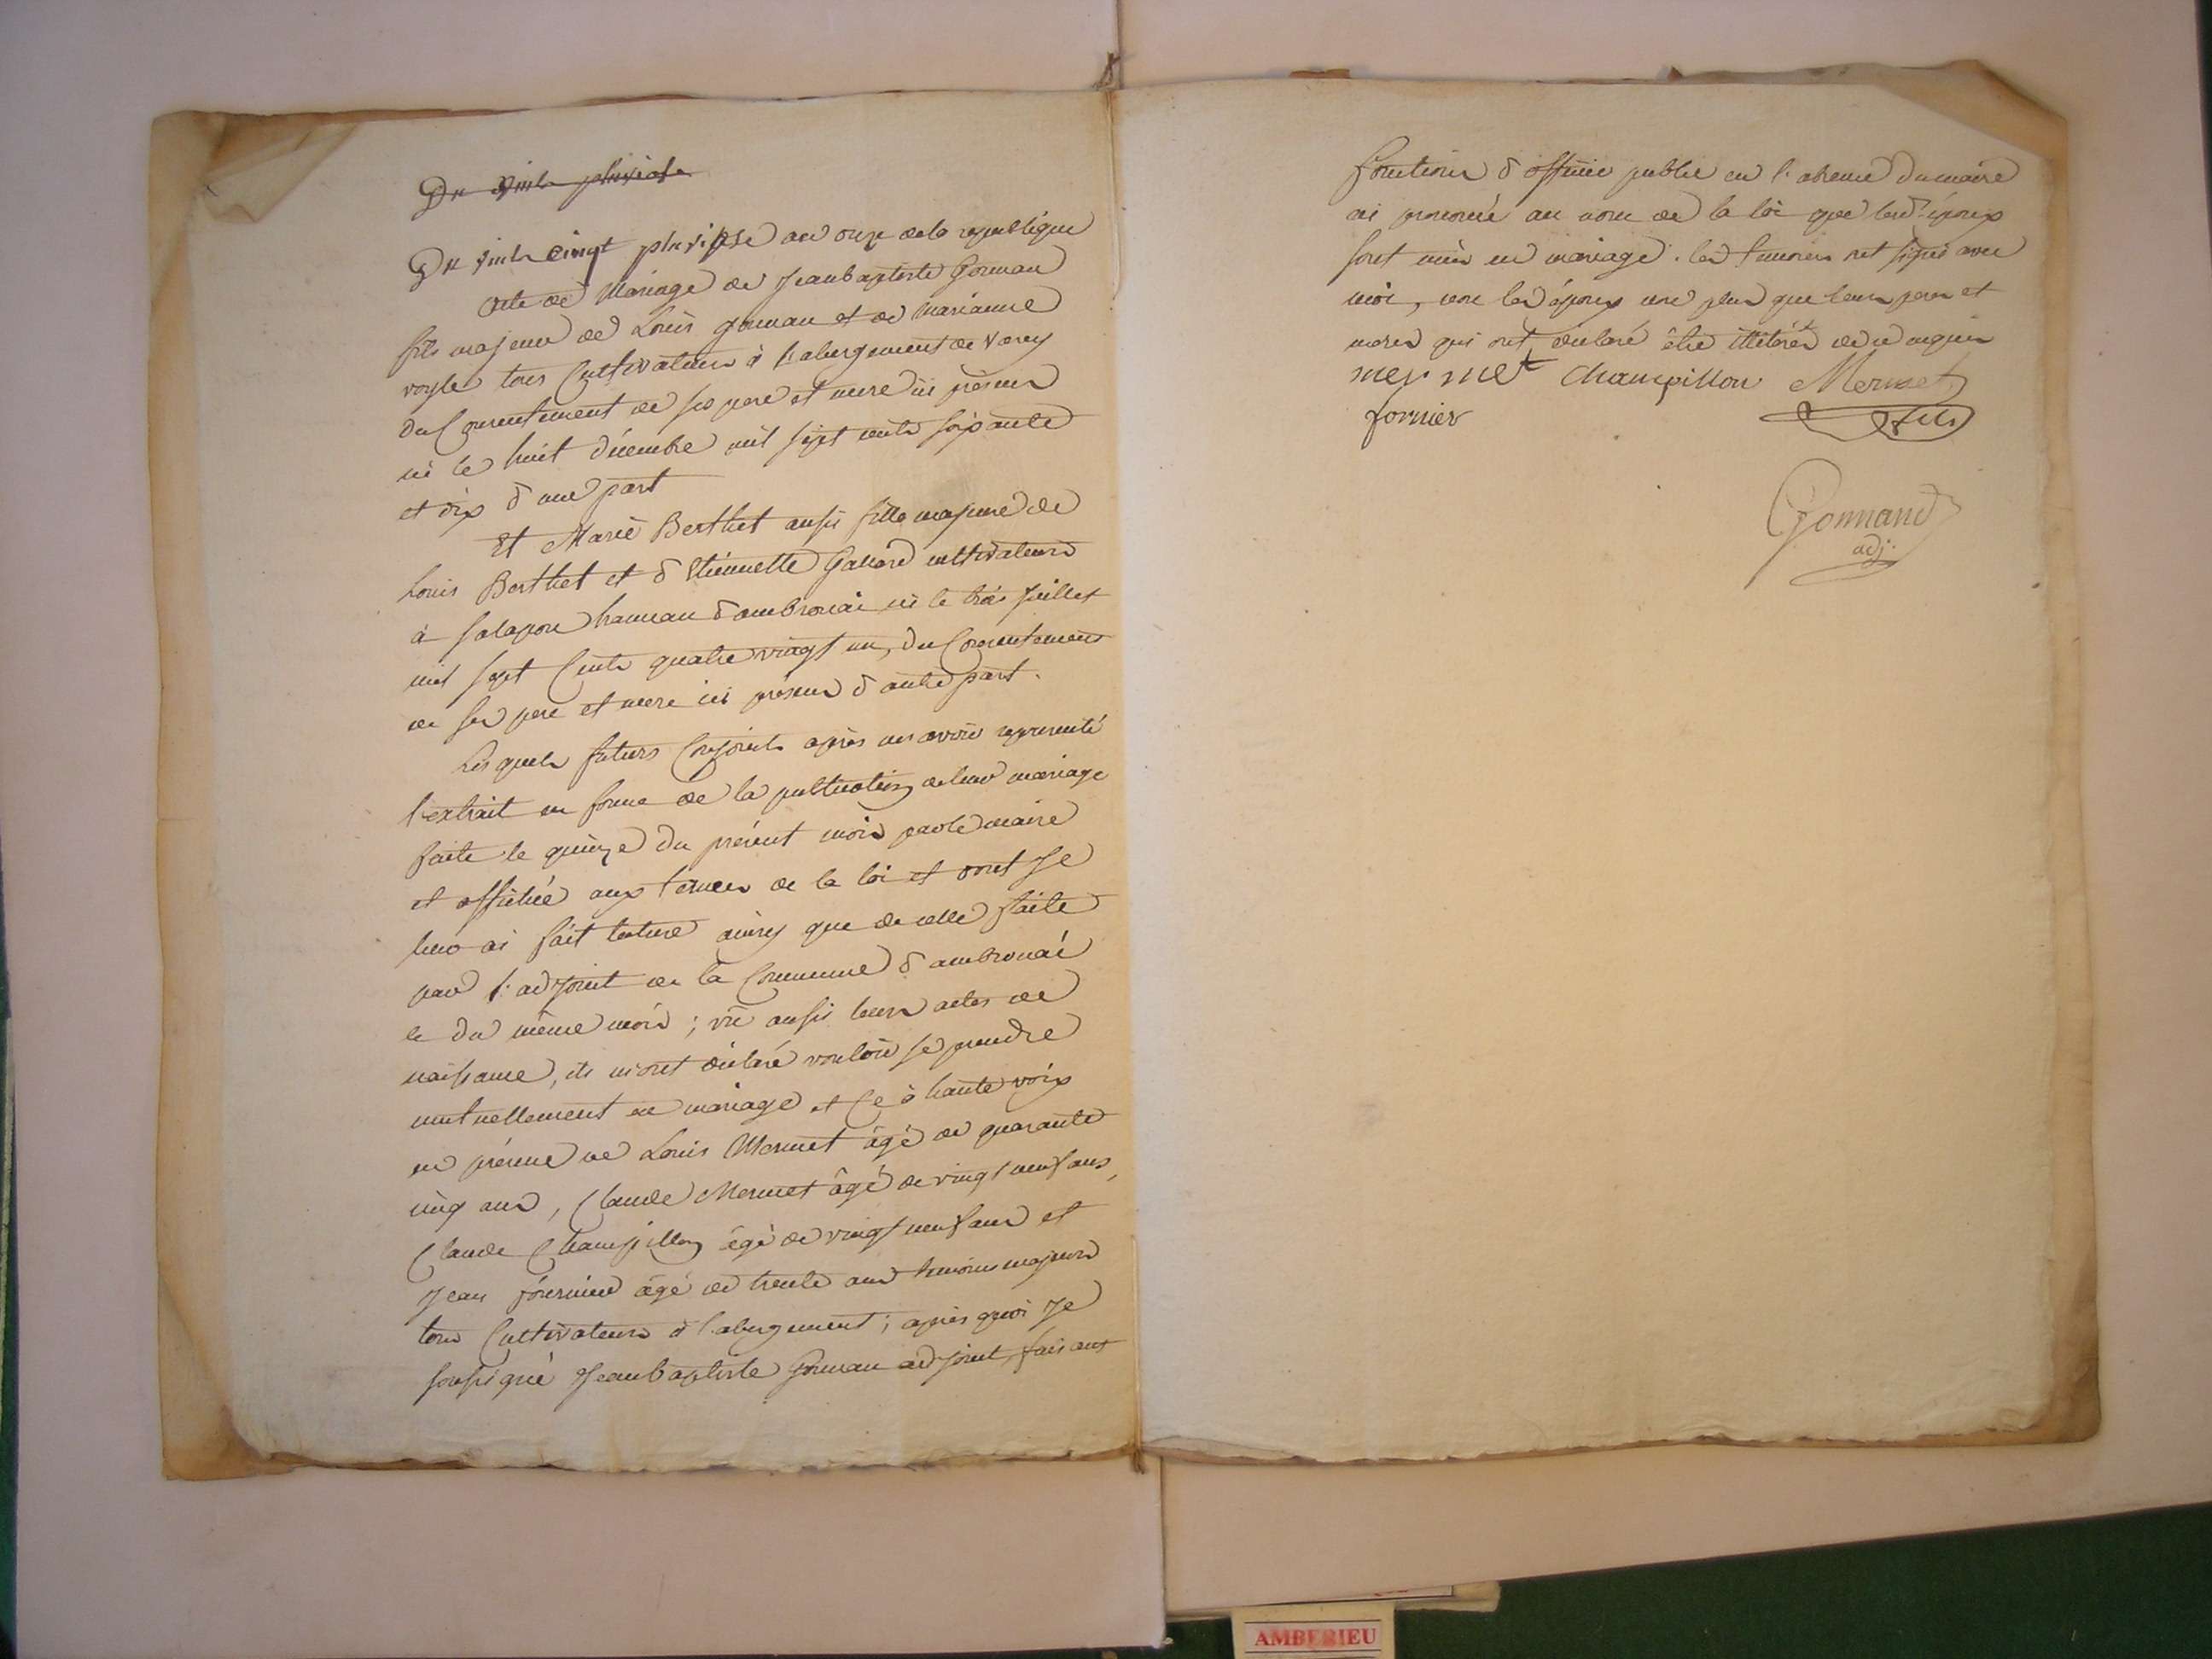 Du vint pluviose
Du vint cinqt pluviose an onze de la republique
acte de Mariage de Jean baptiste Gonnan
fils majeur de Louis gonnan et de Marianne
tous Cultivateurs à l'abergement de varey
du Consentement de ses pere et mere ici présens
né le huit décembre mil sept cents soixante
et dix d'une part
Et Marie Berthet aussi fille majeure de
Louis Berthet et d'Etiennette Gallard cultivateurs
à salapore hameau d'ambronai né le trois juillet
mil sept Cents quatre vingt un, du Consentement
de ses pere et mere ici présens d'autre part.
Lesquels futurs Conjoints après m'avoir representé
l'extrait en forme de la publication de leur mariage
faite le quinze du présent mois par le maire
et affichée aux termes de la loi et dont Je
leur ai fait lecture ainsy que de celle faite
par l'adjoint de la Commune d'ambronai
le du même mois; vu aussi leurs actes de
naissance, ils m'ont déclaré vouloir se prendre
mutuellement en mariage et Ce à haute voix
en présence de Louis Mermet âgé de quarante
cinq ans, Claude Mermet âgé de vingt neuf ans,
Claude Champillon âgé de vingt neuf ans et
Jean fournier âgé de trente ans temoins majeurs
tous Cultivateurs à l'abergement; après quoi Je
soussigné Jean baptiste Gonnan adjoint, faisant
fonctions d'officier public en l'absence du maire
ai prononcé au nom de la loi que lesd. époux
sont unis en mariage. les temoins ont signé avec
moi, non les époux non plus que leurs peres et
meres qui ont déclaré être illitérés de ce requis
mermet Champillon Mermet
fornier fils
Gonnand
adj.
AMBERIEU